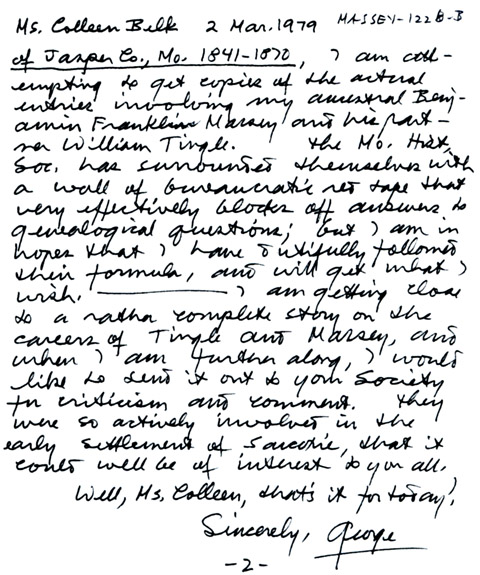 Ms. Colleen Belk 2 Mar. 1979 MASSEY-122B-B
of Jasper Co., Mo. 1841-1870, I am att-
empting to get copies of the actual
entries involving my ancestral Benj-
amin Franklin Massey and his part-
ner William Tingle. The Mo. Hist.
Soc. has surrounded themselves with
a wall of bureaucratic red tape that
very effectively blocks off answers to
genealogical questions; but I am in
hopes that I have dutifully followed
their formula, and will get what I
wish. ——— I am getting close
to a rather complete story on the
careers of Tingle and Massey, and
when I am further along, I would
like to send it out to your Society
for criticism and comment. They
were so actively involved in the
early settlement of Sarcoxie, that it
could well be of interest to you all.
Well, Ms. Colleen, that's it for today!
Sincerely, George
-2-